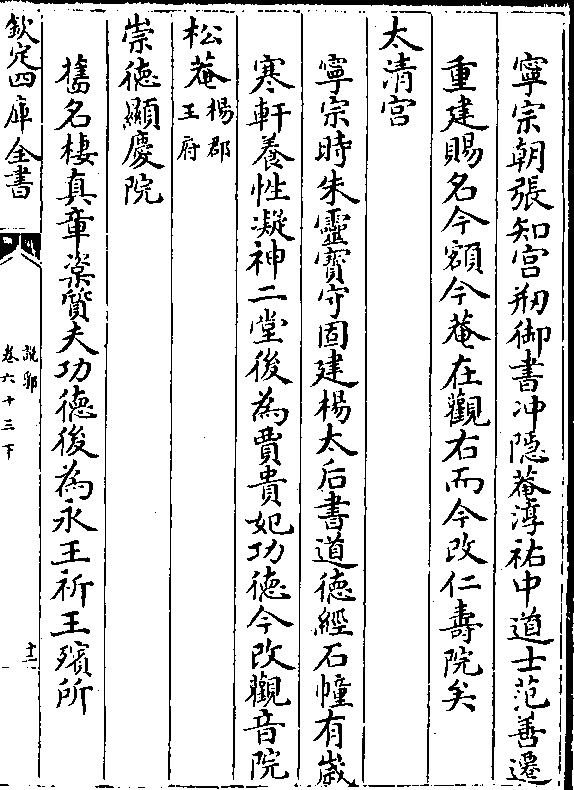 寧宗朝張知宫刱御書冲隱菴淳祐中道士范善遷
重建賜名今額今菴在觀右而今改仁壽院矣
太清宫
寧宗時朱靈寳守固建楊太后書道德經石幢有歲
寒軒養性凝神二堂後為賈貴妃功德今改觀音院
松菴楊郡王府
崇德顯慶院
舊名棲真章粢質夫功德後為永王祈王殯所
欽定四庫全書
說郛
卷六十三下
十二